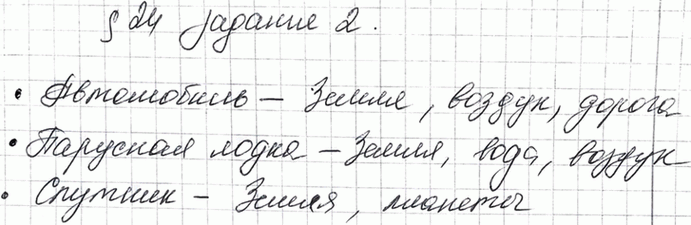 § 24 задание 2.
• Автомобиль – Земля, воздух, дорога
• Парусная лодка – Земля, вода, воздух
• Спутник – Земля, планеты